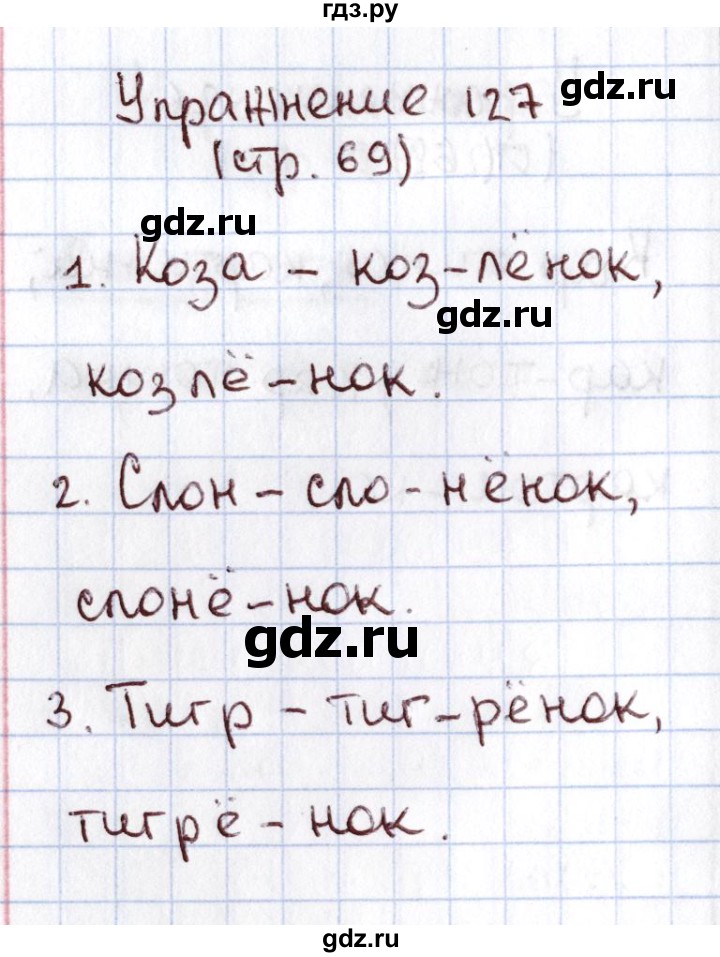 гдз.ру
Упражнение 127
gdz.ru
(стр. 69)
gdz.ru
1. Коза – коз-лёнок,
gdz.ru
козлё-нок.
2. Слон – сло-нёнок,
слонё-нок.
gdz.ru
3. Тигр – тиг-рёнок,
тигрё-нок.
gdz.ru